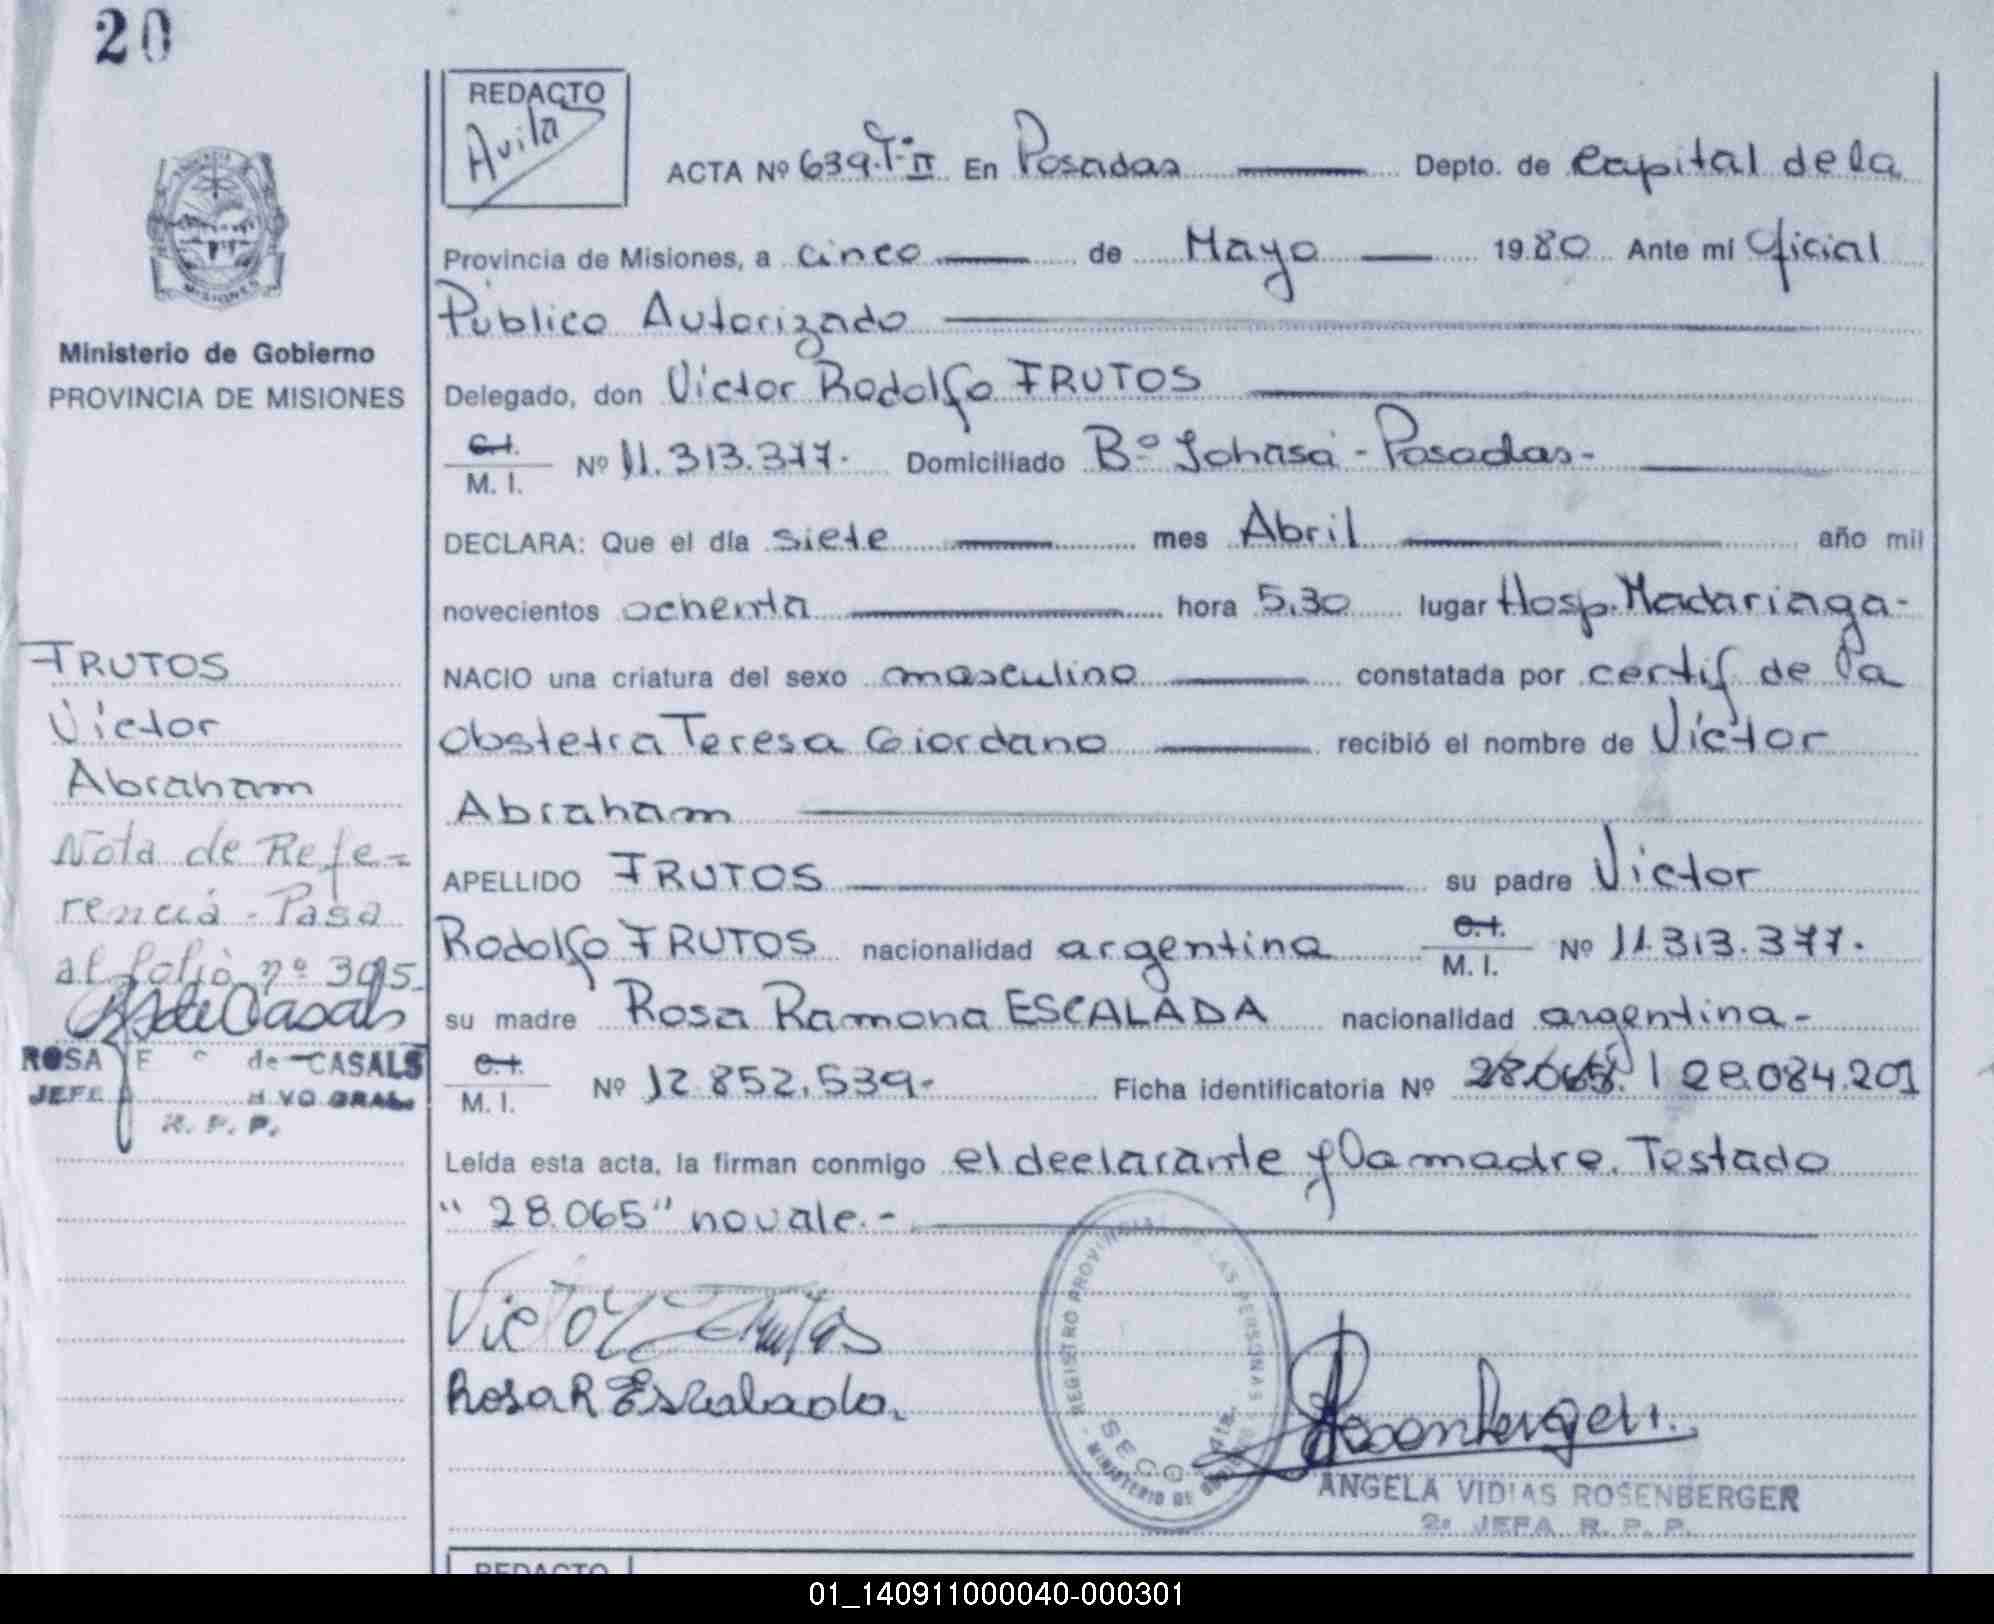 20
REDACTO
Avila
ACTA Nº 639.Tº II En Posadas Depto. de Capital de la
Provincia de Misiones, a cinco de Mayo 1980 Ante mi Oficial
Público Autorizado
Delegado, don Victor Rodolfo FRUTOS
C.I.
M. I. Nº 11.313.377. Domiciliado Bº Sohasa - Posadas-
DECLARA: Que el día siete mes Abril año mil
novecientos ochenta hora 5,30 lugar Hosp. Madariaga-
NACIO una criatura del sexo masculino constatada por certif de la
obstetra Teresa Giordano recibió el nombre de Victor
Abraham
APELLIDO FRUTOS su padre Victor
Rodolfo FRUTOS nacionalidad argentina C.I. M. I. Nº 11.313.377.
su madre Rosa Ramona ESCALADA nacionalidad argentina-
C.I.
M. I. Nº 12.852.539- Ficha identificatoria Nº 28.065. | 28.084.201
Leída esta acta, la firman conmigo el declarante y la madre. Testado
"28.065" no vale.-
Victor Frutos
Rosa R Escalada.
REGISTRO PROVINCIAL DE LAS PERSONAS
MINISTERIO DE
SECC
Rosenberger
ANGELA VIDIAS ROSENBERGER
2º JEFA R. P. P.
MISIONES
Ministerio de Gobierno
PROVINCIA DE MISIONES
FRUTOS
Victor
Abraham
Nota de Refe-
rencia - Pasa
al folio nº 305
de Casals
ROSA E de CASALS
JEFE VO GRAL.
R. P. P.
REDACTO
01_140911000040-000301